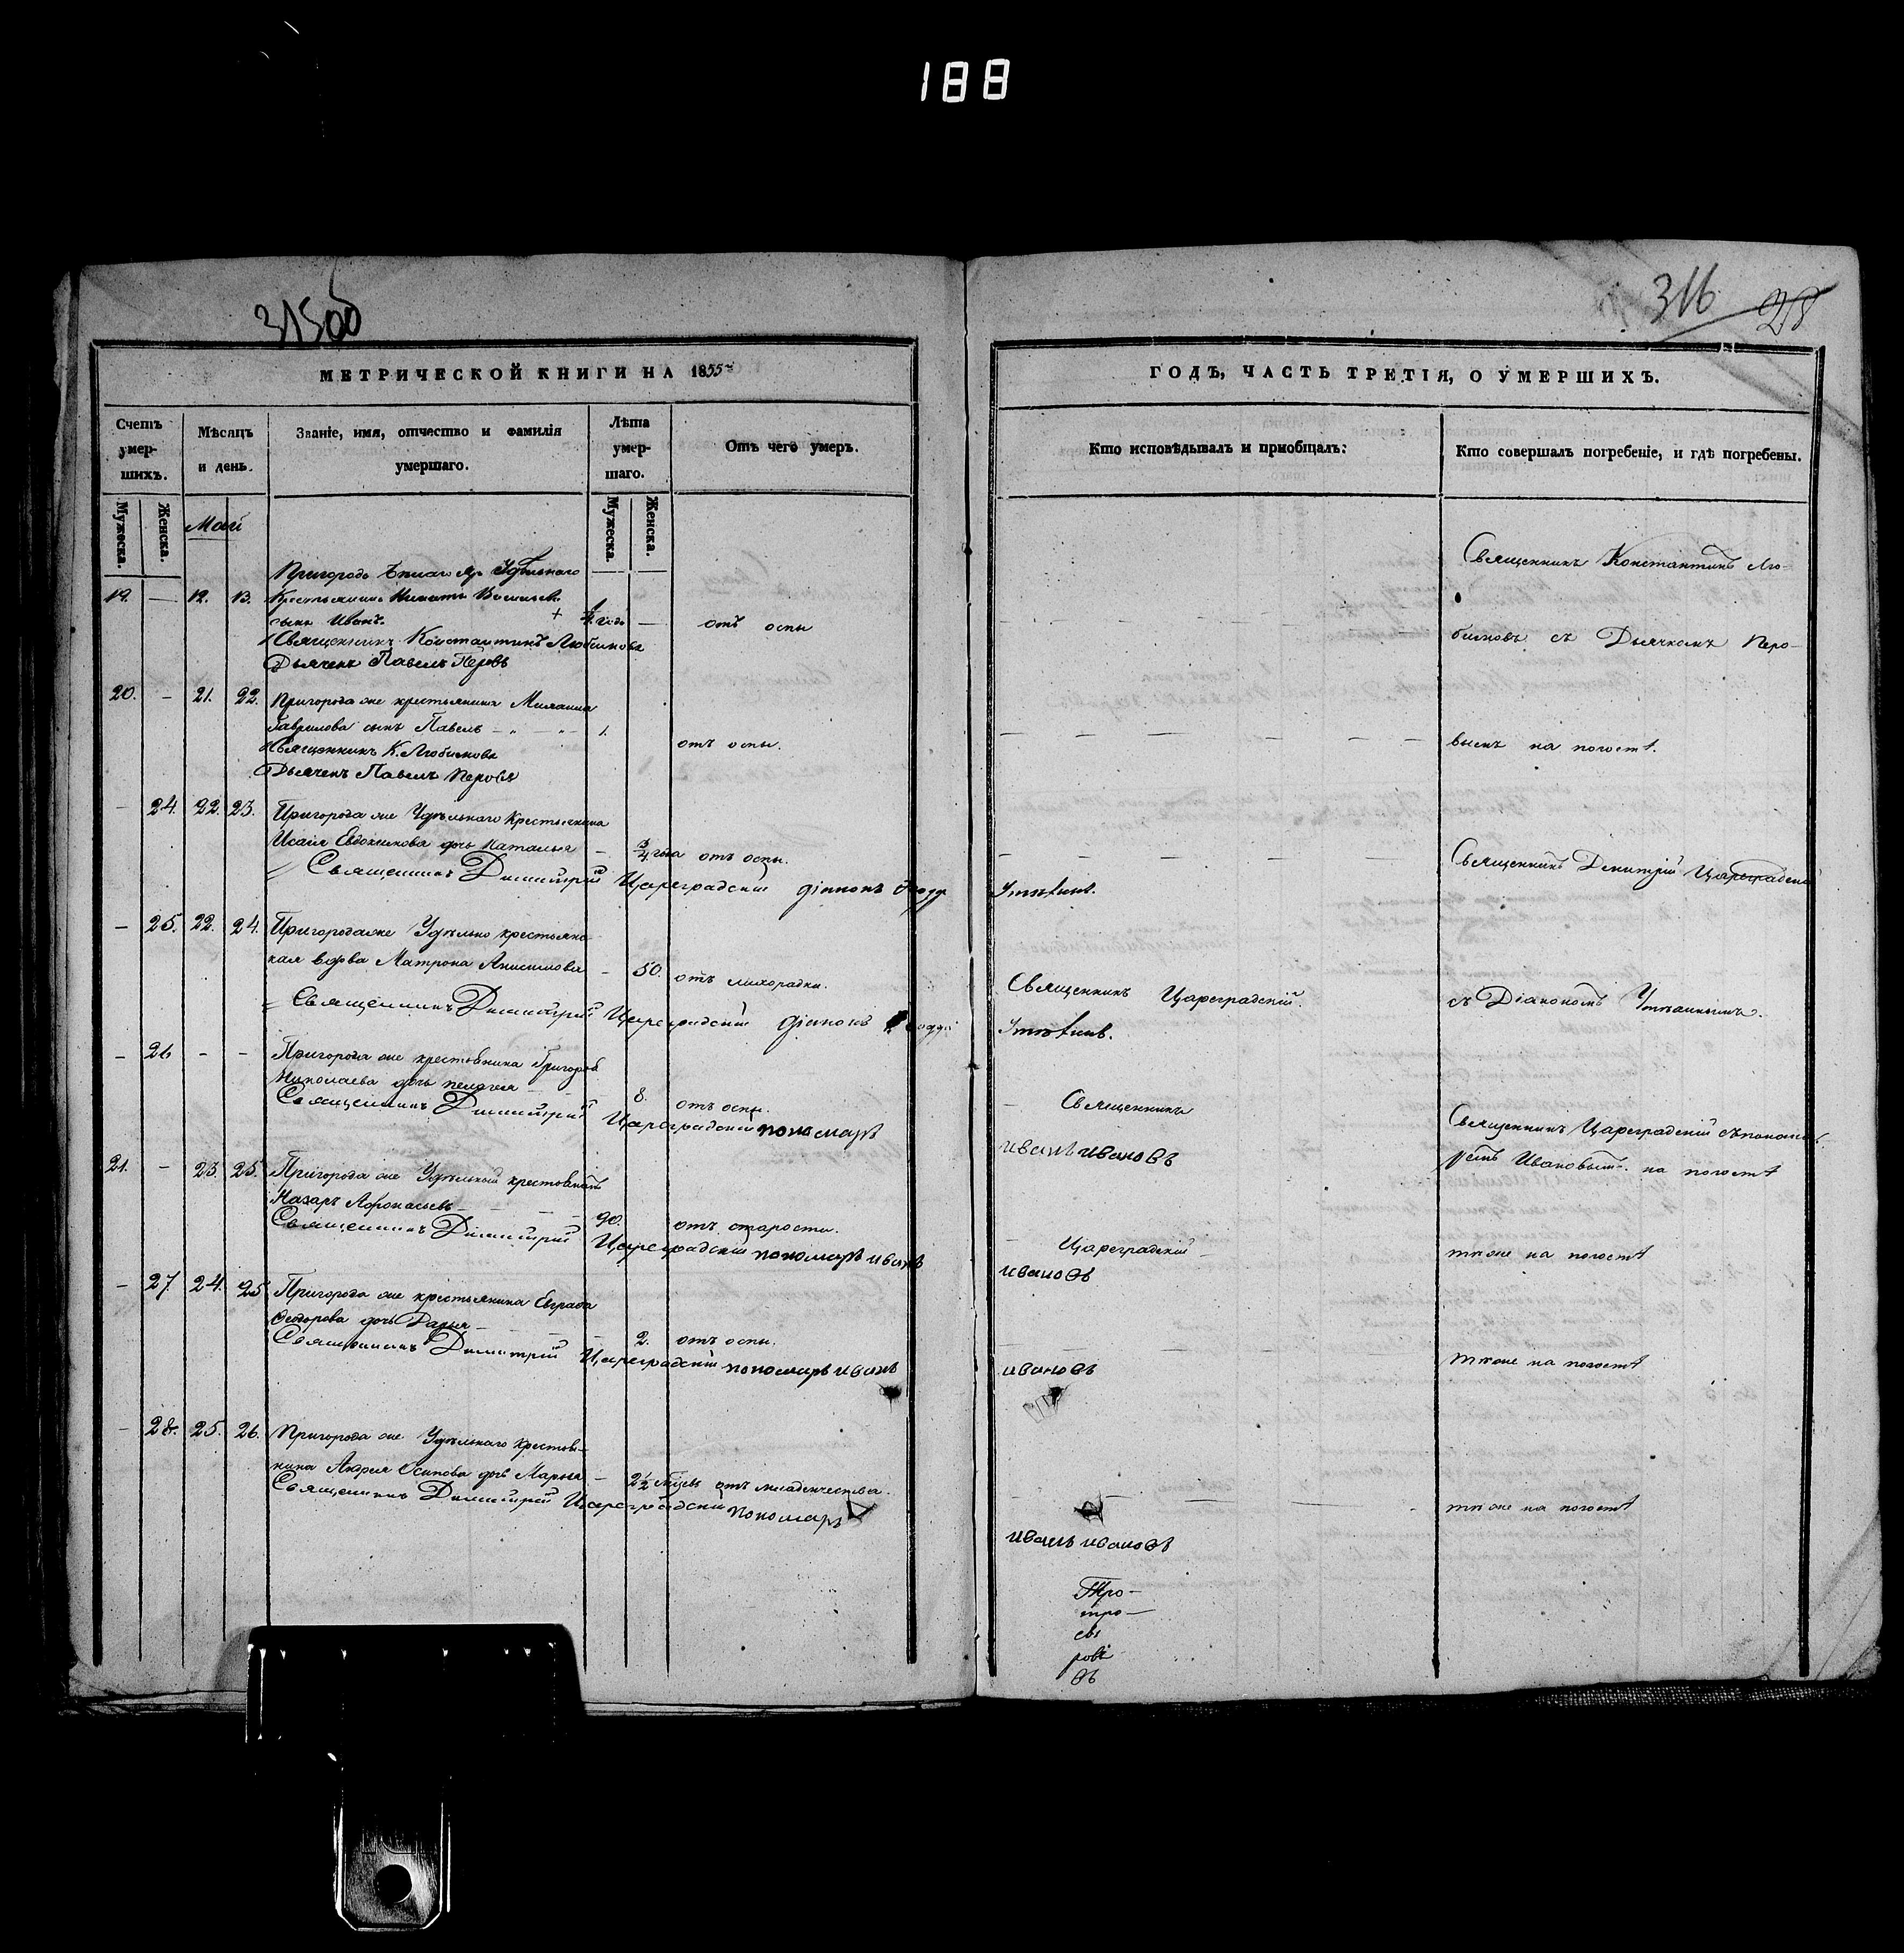 188
315об
316
28
МЕТРИЧЕСКОЙ КНИГИ НА 1855
ГОДЪ, ЧАСТЬ ТРЕТІЯ, О УМЕРШИХЪ.
Счетъ умер-
шихъ.
Мѣсяцъ
и день.
Званіе, имя, отчество и фамилія
умершаго.
Лѣта
умер-
шаго.
Отъ чего умеръ.
Кто исповѣдывалъ и приобщалъ:
Кто совершалъ погребеніе, и гдѣ погребены.
Мужеска.
Женска.
Май
Мужеска.
Женска.
Пригорода Удѣльнаго
19. — 12. 13. Крестьянина Никиты Васильева
сынъ Иванъ. года — отъ оспы
Священникъ Константинъ Любимовъ
Дьячекъ Павелъ Перовъ
Священникъ Константинъ Лю-
бимовъ съ Дьячкомъ Перо-
20. — 21. 22. Пригорода же крестьянина
Гаврилова сынъ Павелъ — 1. отъ оспы.
Священникъ К. Любимовъ
Дьячекъ Павелъ Перовъ
вымъ на погостѣ.
— 24. 22. 23. Пригорода же Удѣльнаго Крестьянина
Исаія Евдокимова дочь Наталья — 3/4 года отъ оспы.
Священникъ Димитрій Цареградскій діаконъ
Священникъ Димитрій Цареградскій
— 25. 22. 24. Пригорода же Удѣльно крестьянс-
кая вдова Матрона Анисимова — 50. отъ лихорадки.
Священникъ Димитрій Цареградскій діаконъ
Священникъ Цареградскій.
съ Діакономъ
— 26 — — Пригорода же крестьянина Григорья
Николаева дочь Пелагея 8. отъ оспы.
Священникъ Димитрій Цареградскій пономарь
Священникъ
Иванъ Ивановъ
Священникъ Цареградскій съ понома-
ремъ Ивановымъ на погостѣ
21. — 23. 25. Пригорода же Удѣльный крестьянинъ
Назаръ Афонасьевъ — 90. отъ старости.
Священникъ Димитрій Цареградскій пономарь Иванъ
Цареградскій
Ивановъ
тамже на погостѣ
— 27. 24. 25 Пригорода же крестьянина Евграфа
Федорова дочь Дарья — 2. отъ оспы.
Священникъ Димитрій Цареградскій пономарь Иванъ
Ивановъ
тамже на погостѣ
— 28. 25. 26. Пригорода же Удѣльнаго Крестья-
нина Андрея Осипова дочь Марья — 2 1/2 мѣсяц отъ младенчества.
Священникъ Димитрій Цареградскій пономарь
Иванъ Ивановъ
тамже на погостѣ